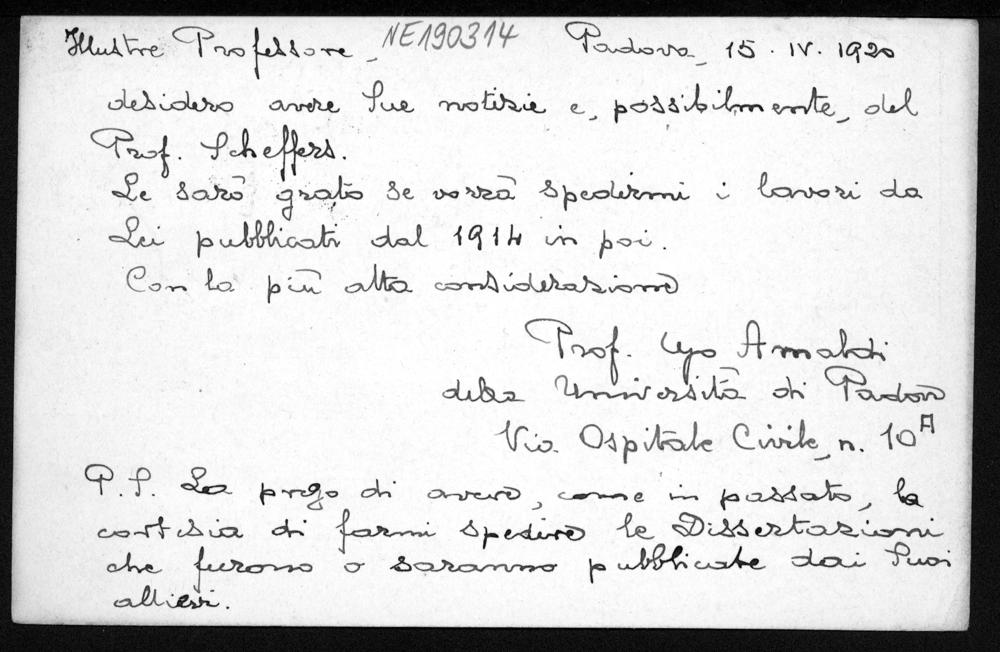 Illustre Professore, NE190314 Padova, 15. IV. 1920
desidero avere Sue notizie e, possibilmente, del
Prof. Scheffers.
Le sarò grato se vorrà spedirmi i lavori da
Lei pubblicati dal 1914 in poi.
Con la più alta considerazione
Prof. Ugo Amaldi
della Università di Padova
Via Ospitale Civile, n. 10A
P. S. La prego di avere, come in passato, la
cortesia di farmi spedire le Dissertazioni
che furono o saranno pubblicate dai Suoi
allievi.